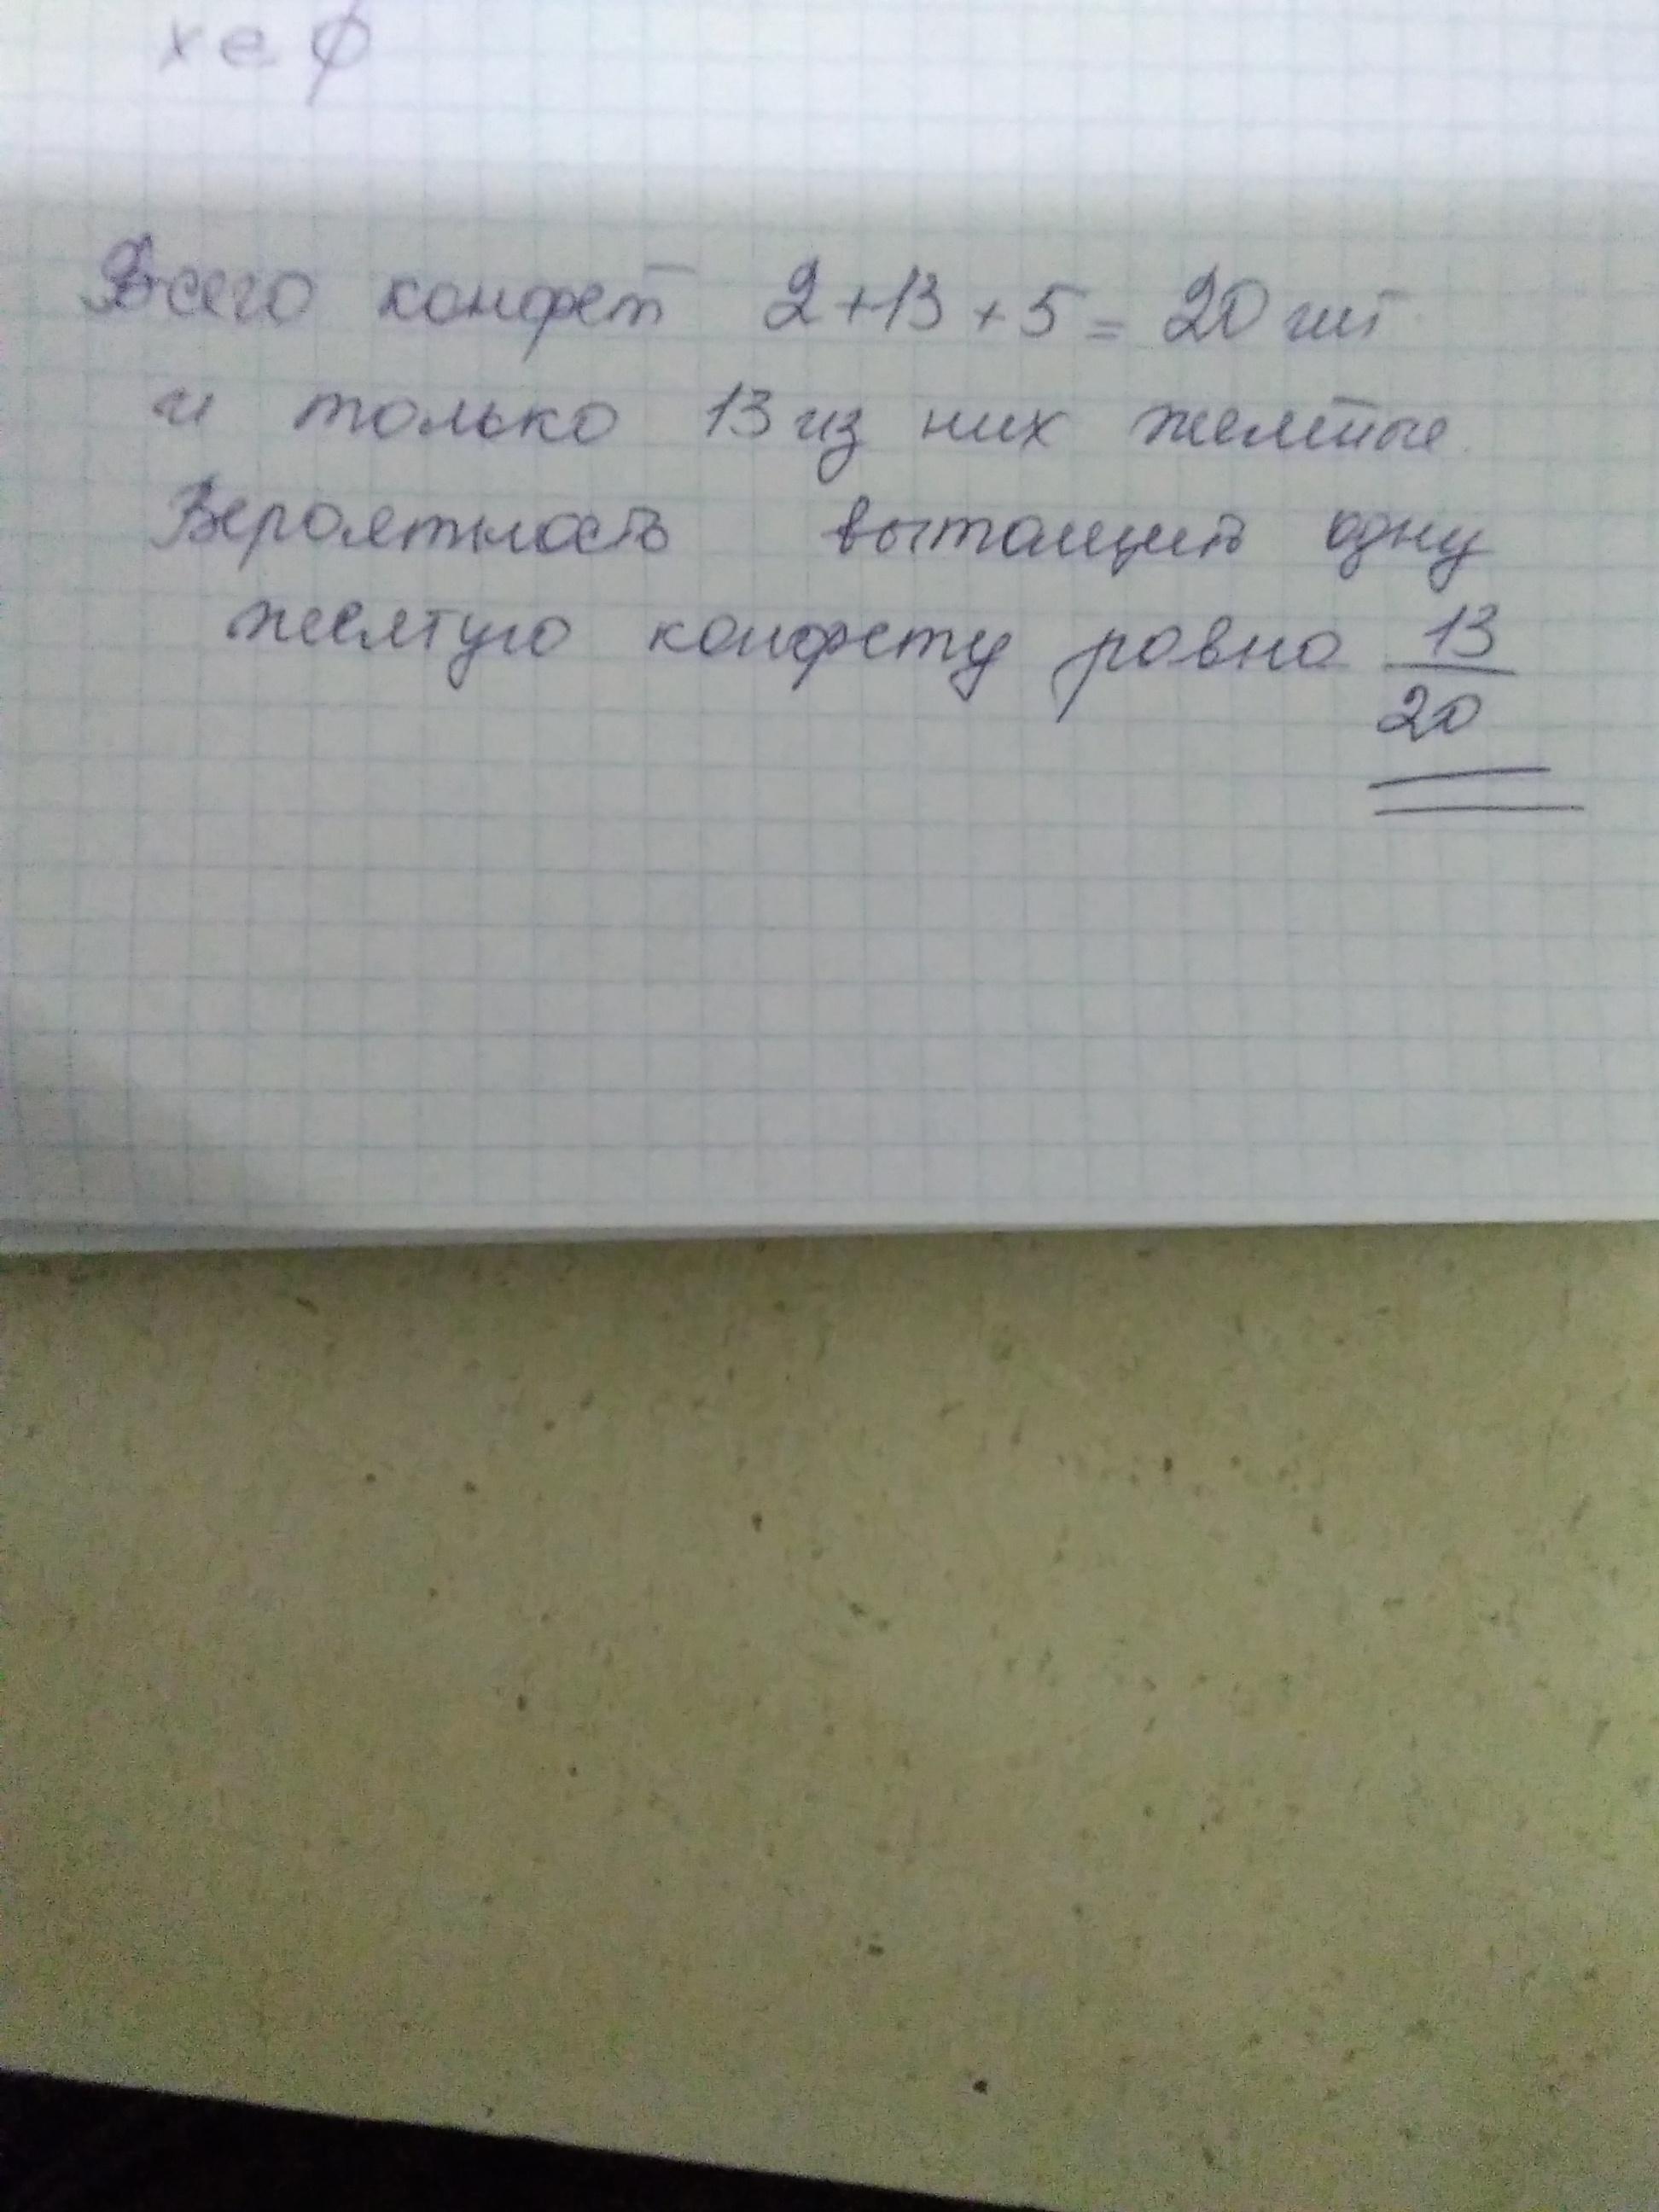 x ∈ ∅
Всего конфет 2+13+5=20 шт
и только 13 из них желтые.
Вероятность вытащить одну
желтую конфету равна 13/20